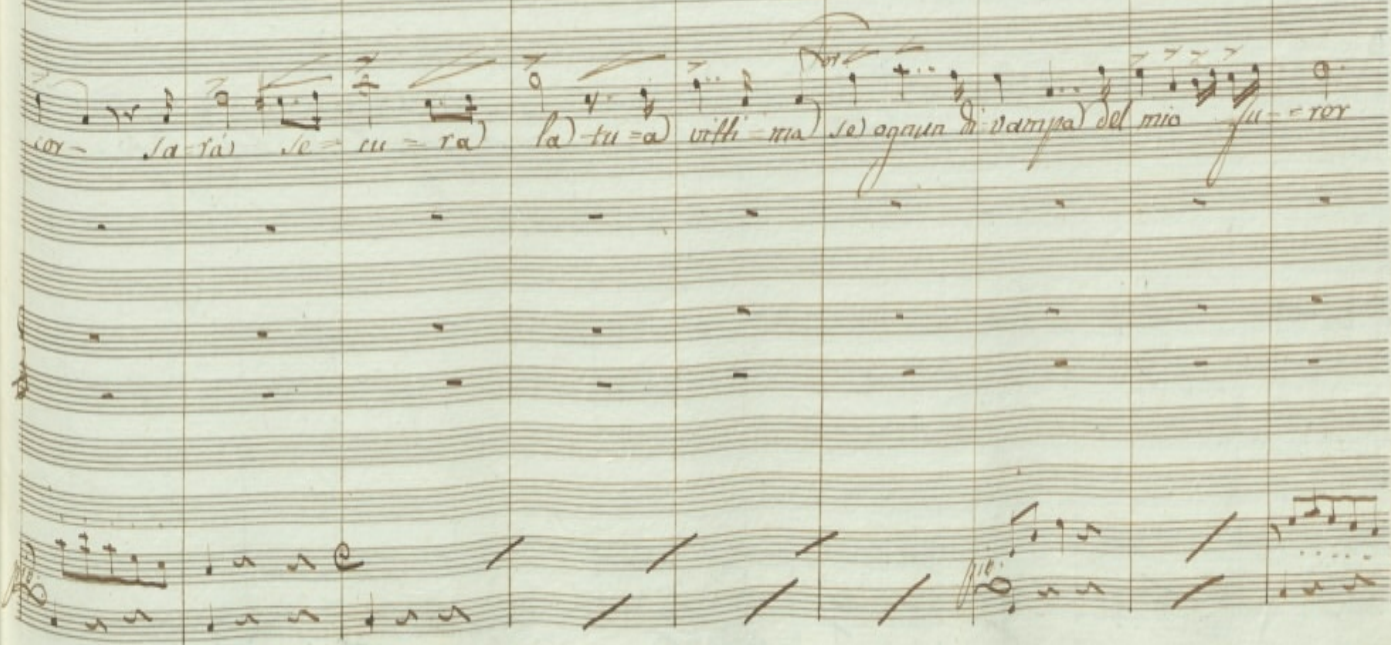 for
cor- sa-rà se-cu-ra la-tu-a vitti-ma se ognun di vampa del mio fu--ror